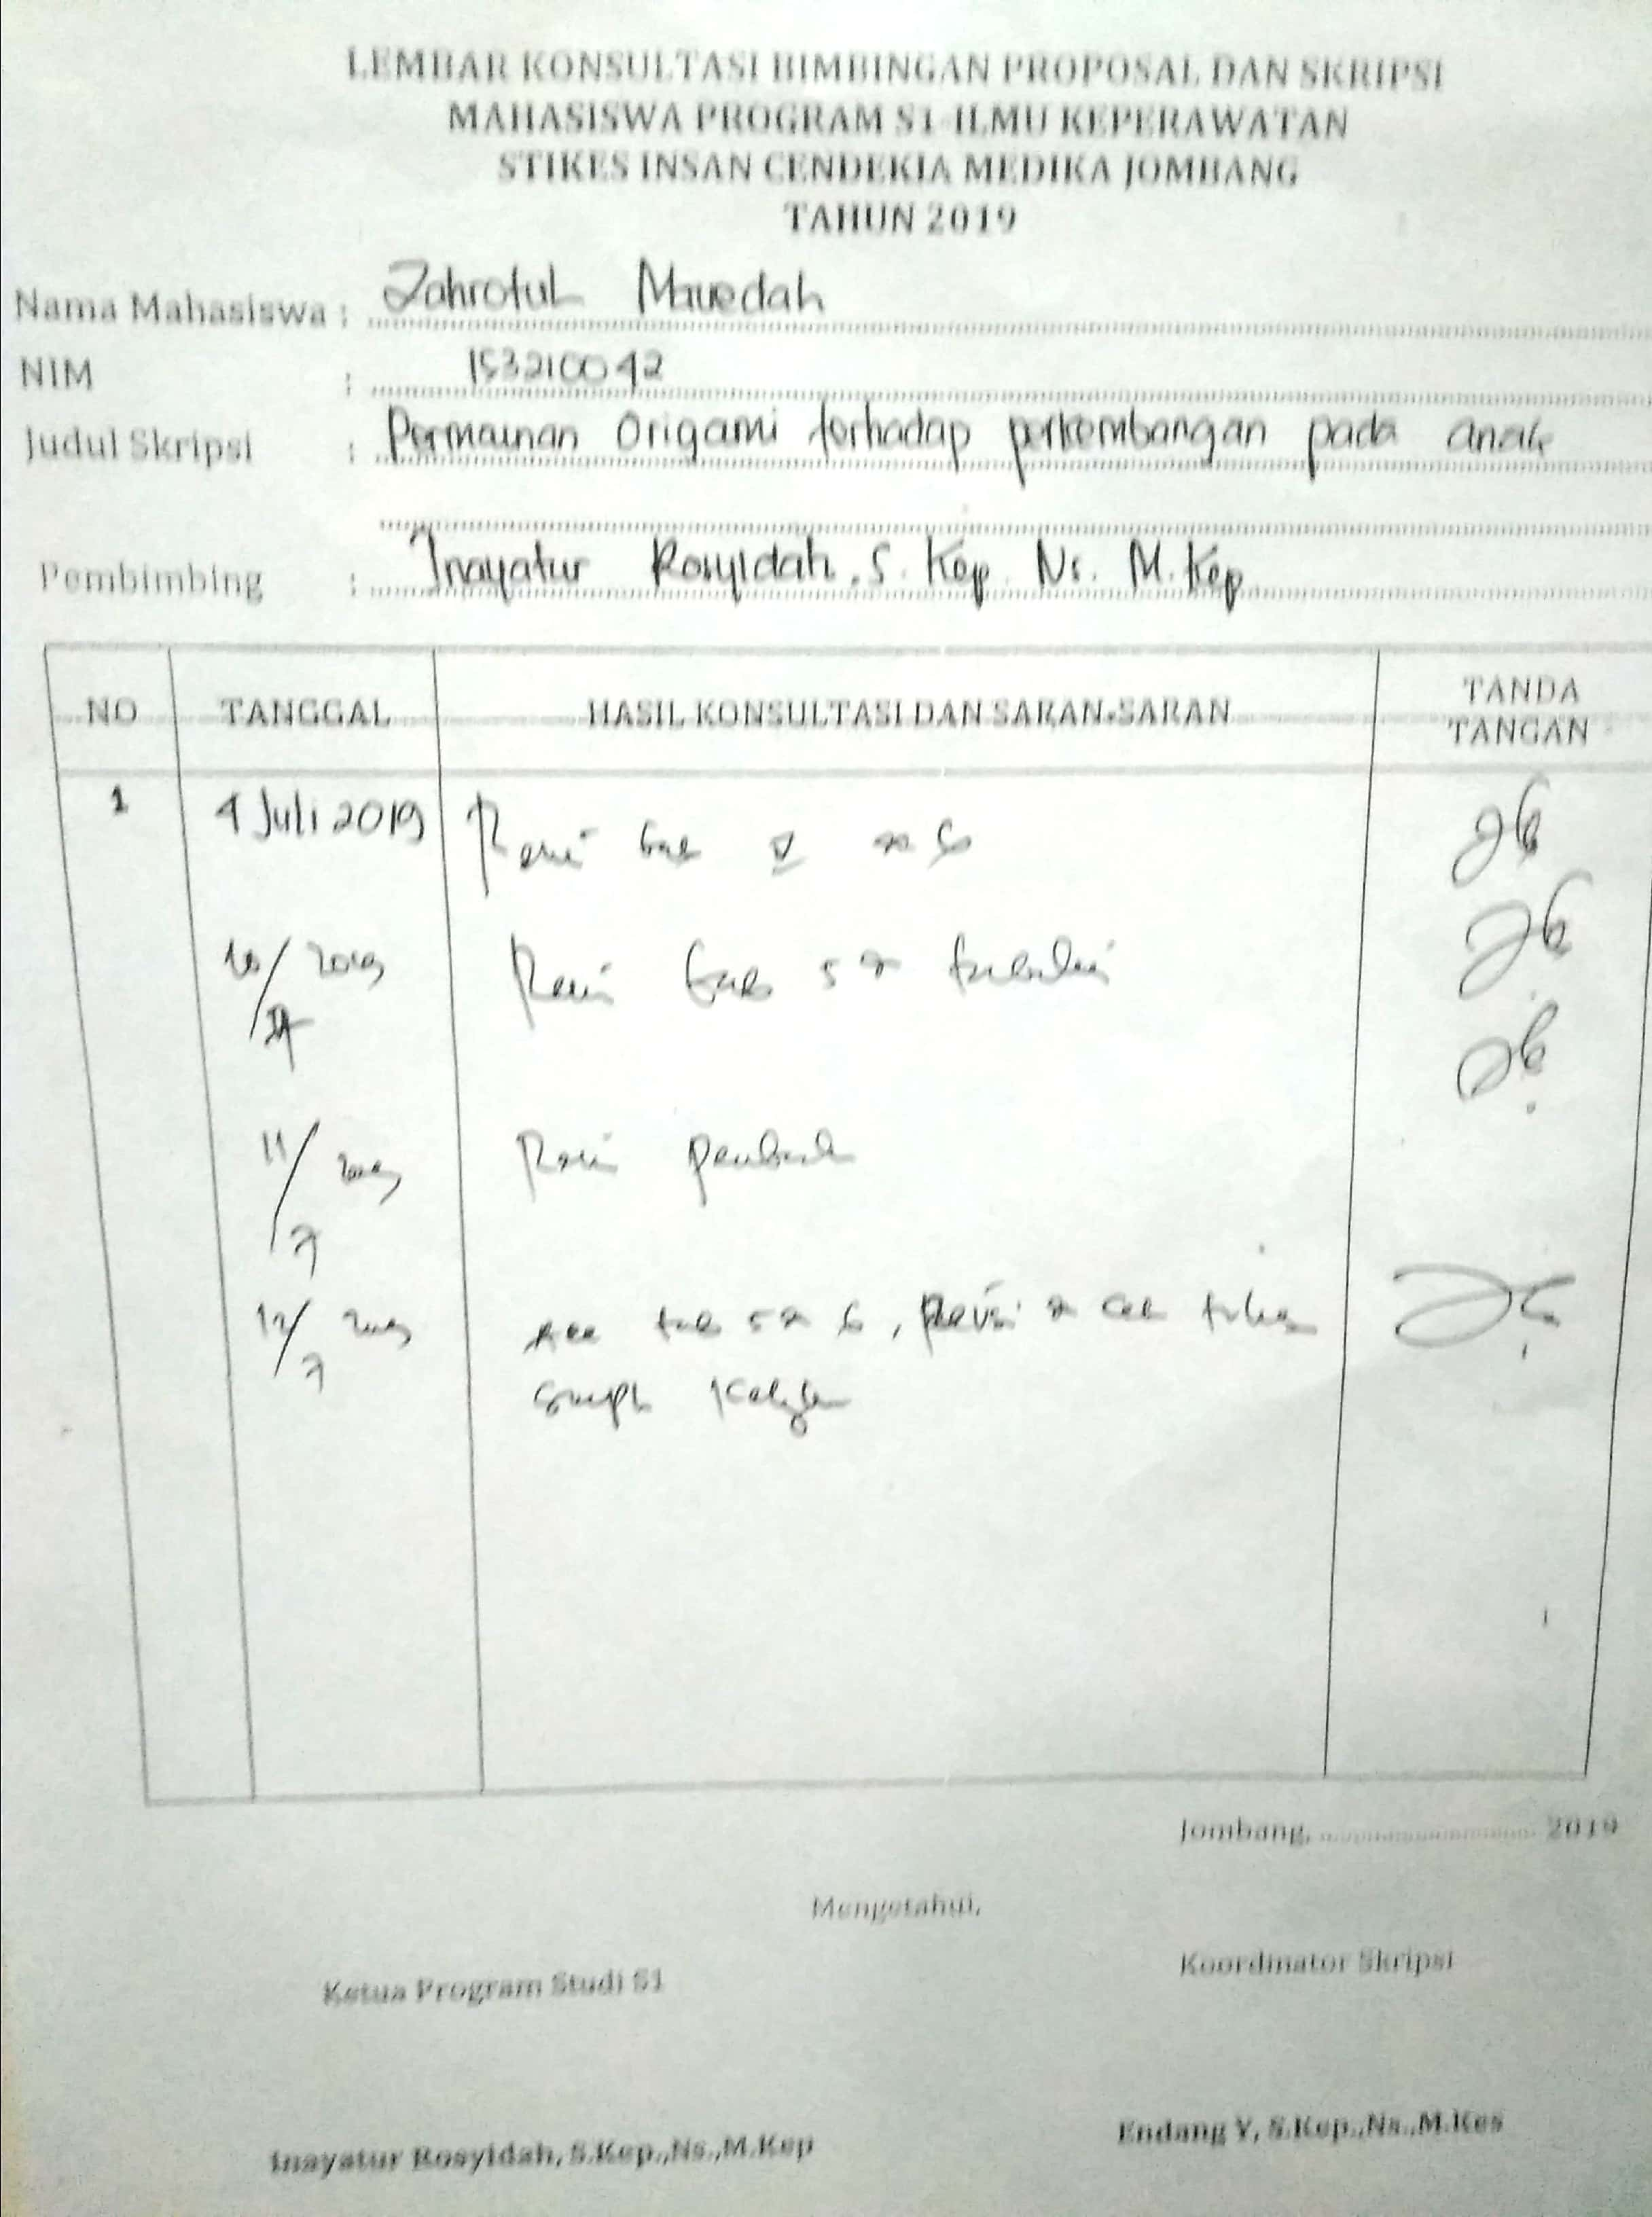 LEMBAR KONSULTASI BIMBINGAN PROPOSAL DAN SKRIPSI
MAHASISWA PROGRAM S1 ILMU KEPERAWATAN
STIKES INSAN CENDEKIA MEDIKA JOMBANG
TAHUN 2019
Nama Mahasiswa : Zahrotul Mauedah
NIM : 153210042
Judul Skripsi : Permainan Origami terhadap perkembangan pada anak
Pembimbing : Inayatur Rosyidah, S. Kep. Ns. M. Kep
NO TANGGAL HASIL KONSULTASI DAN SARAN-SARAN TANDA TANGAN
1 4 Juli 2019 Revisi bab 5 6
10/7 2019 Revisi bab 5
11/7 2019 Revisi
12/7 2019 Acc bab 5 6, Revisi
Jombang, 2019
Mengetahui,
Ketua Program Studi S1 Koordinator Skripsi
Inayatur Rosyidah, S.Kep.,Ns.,M.Kep Endang Y, S.Kep.,Ns.,M.Kes